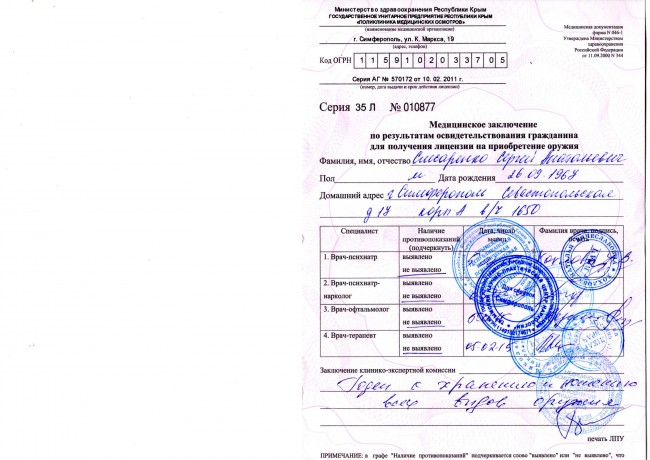 Министерство здравоохранения Республики Крым
ГОСУДАРСТВЕННОЕ УНИТАРНОЕ ПРЕДПРИЯТИЕ РЕСПУБЛИКИ КРЫМ
«ПОЛИКЛИНИКА МЕДИЦИНСКИХ ОСМОТРОВ»
(наименование медицинской организации)
г. Симферополь, ул. К. Маркса, 19
(адрес, телефон)
Медицинская документация
форма N 046-1
Утверждена Министерством
здравоохранения
Российской Федерации
от 11.09.2000 N 344
Код ОГРН 1 1 5 9 1 0 2 0 3 3 7 0 5
Серия АГ № 570172 от 10. 02. 2011 г.
(номер, дата выдачи и срок действия лицензии)
Серия 35 Л № 010877
Медицинское заключение
по результатам освидетельствования гражданина
для получения лицензии на приобретение оружия
Фамилия, имя, отчество Сергей
Пол м Дата рождения 26 09 1967
Домашний адрес г Симферополь Севастопольская
д 17 корп А в/ч 1650
Специалист
Наличие противопоказаний (подчеркнуть)
Дата, число
Фамилия врача, подпись,
1. Врач-психиатр
выявлено
не выявлено
2. Врач-психиатр-нарколог
выявлено
не выявлено
3. Врач-офтальмолог
выявлено
не выявлено
4. Врач-терапевт
выявлено
не выявлено
Для справок
Симферополь
Заключение клинико-экспертной комиссии
Годен к хранению и ношению
всех видов оружия
печать ЛПУ
ПРИМЕЧАНИЕ: в графе "Наличие противопоказаний" подчеркивается слово "выявлено" или "не выявлено", что